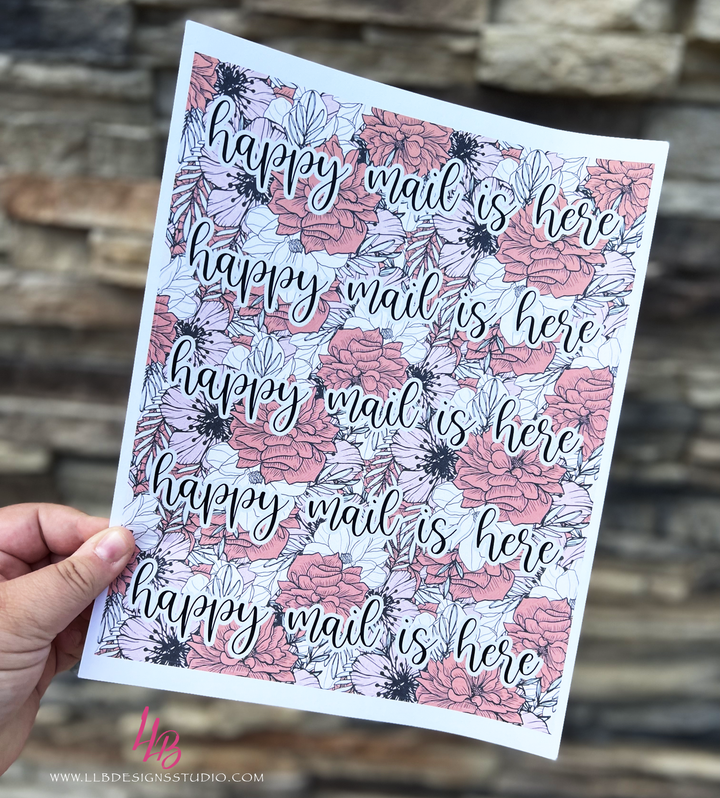 happy mail is here
happy mail is here
happy mail is here
happy mail is here
happy mail is here
LLB
WWW.LLBDESIGNSSTUDIO.COM